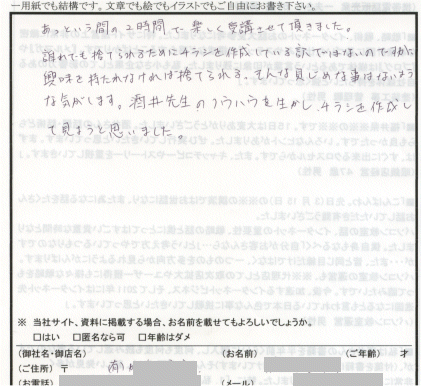 一用紙でも結構です。文章でも絵でもイラストでもご自由にお書き下さい。
あっという間の、2時間で、楽しく受講させて頂きました。
誰れでも捨てられるためにチラシを作成している訳ではないので
興味を持たれなければ捨てられる、そんな
な気がします。酒井先生のノウハウを生かし、チラシを作成し
て見ようと思いました。
※ 当社サイト、資料に掲載する場合、お名前を載せてもよろしいでしょうか。
□はい □匿名なら可 □年齢はダメ
(御社名・御店名) (お名前) (ご年齢) 才
(ご住所) 〒
(お電話) (メール)